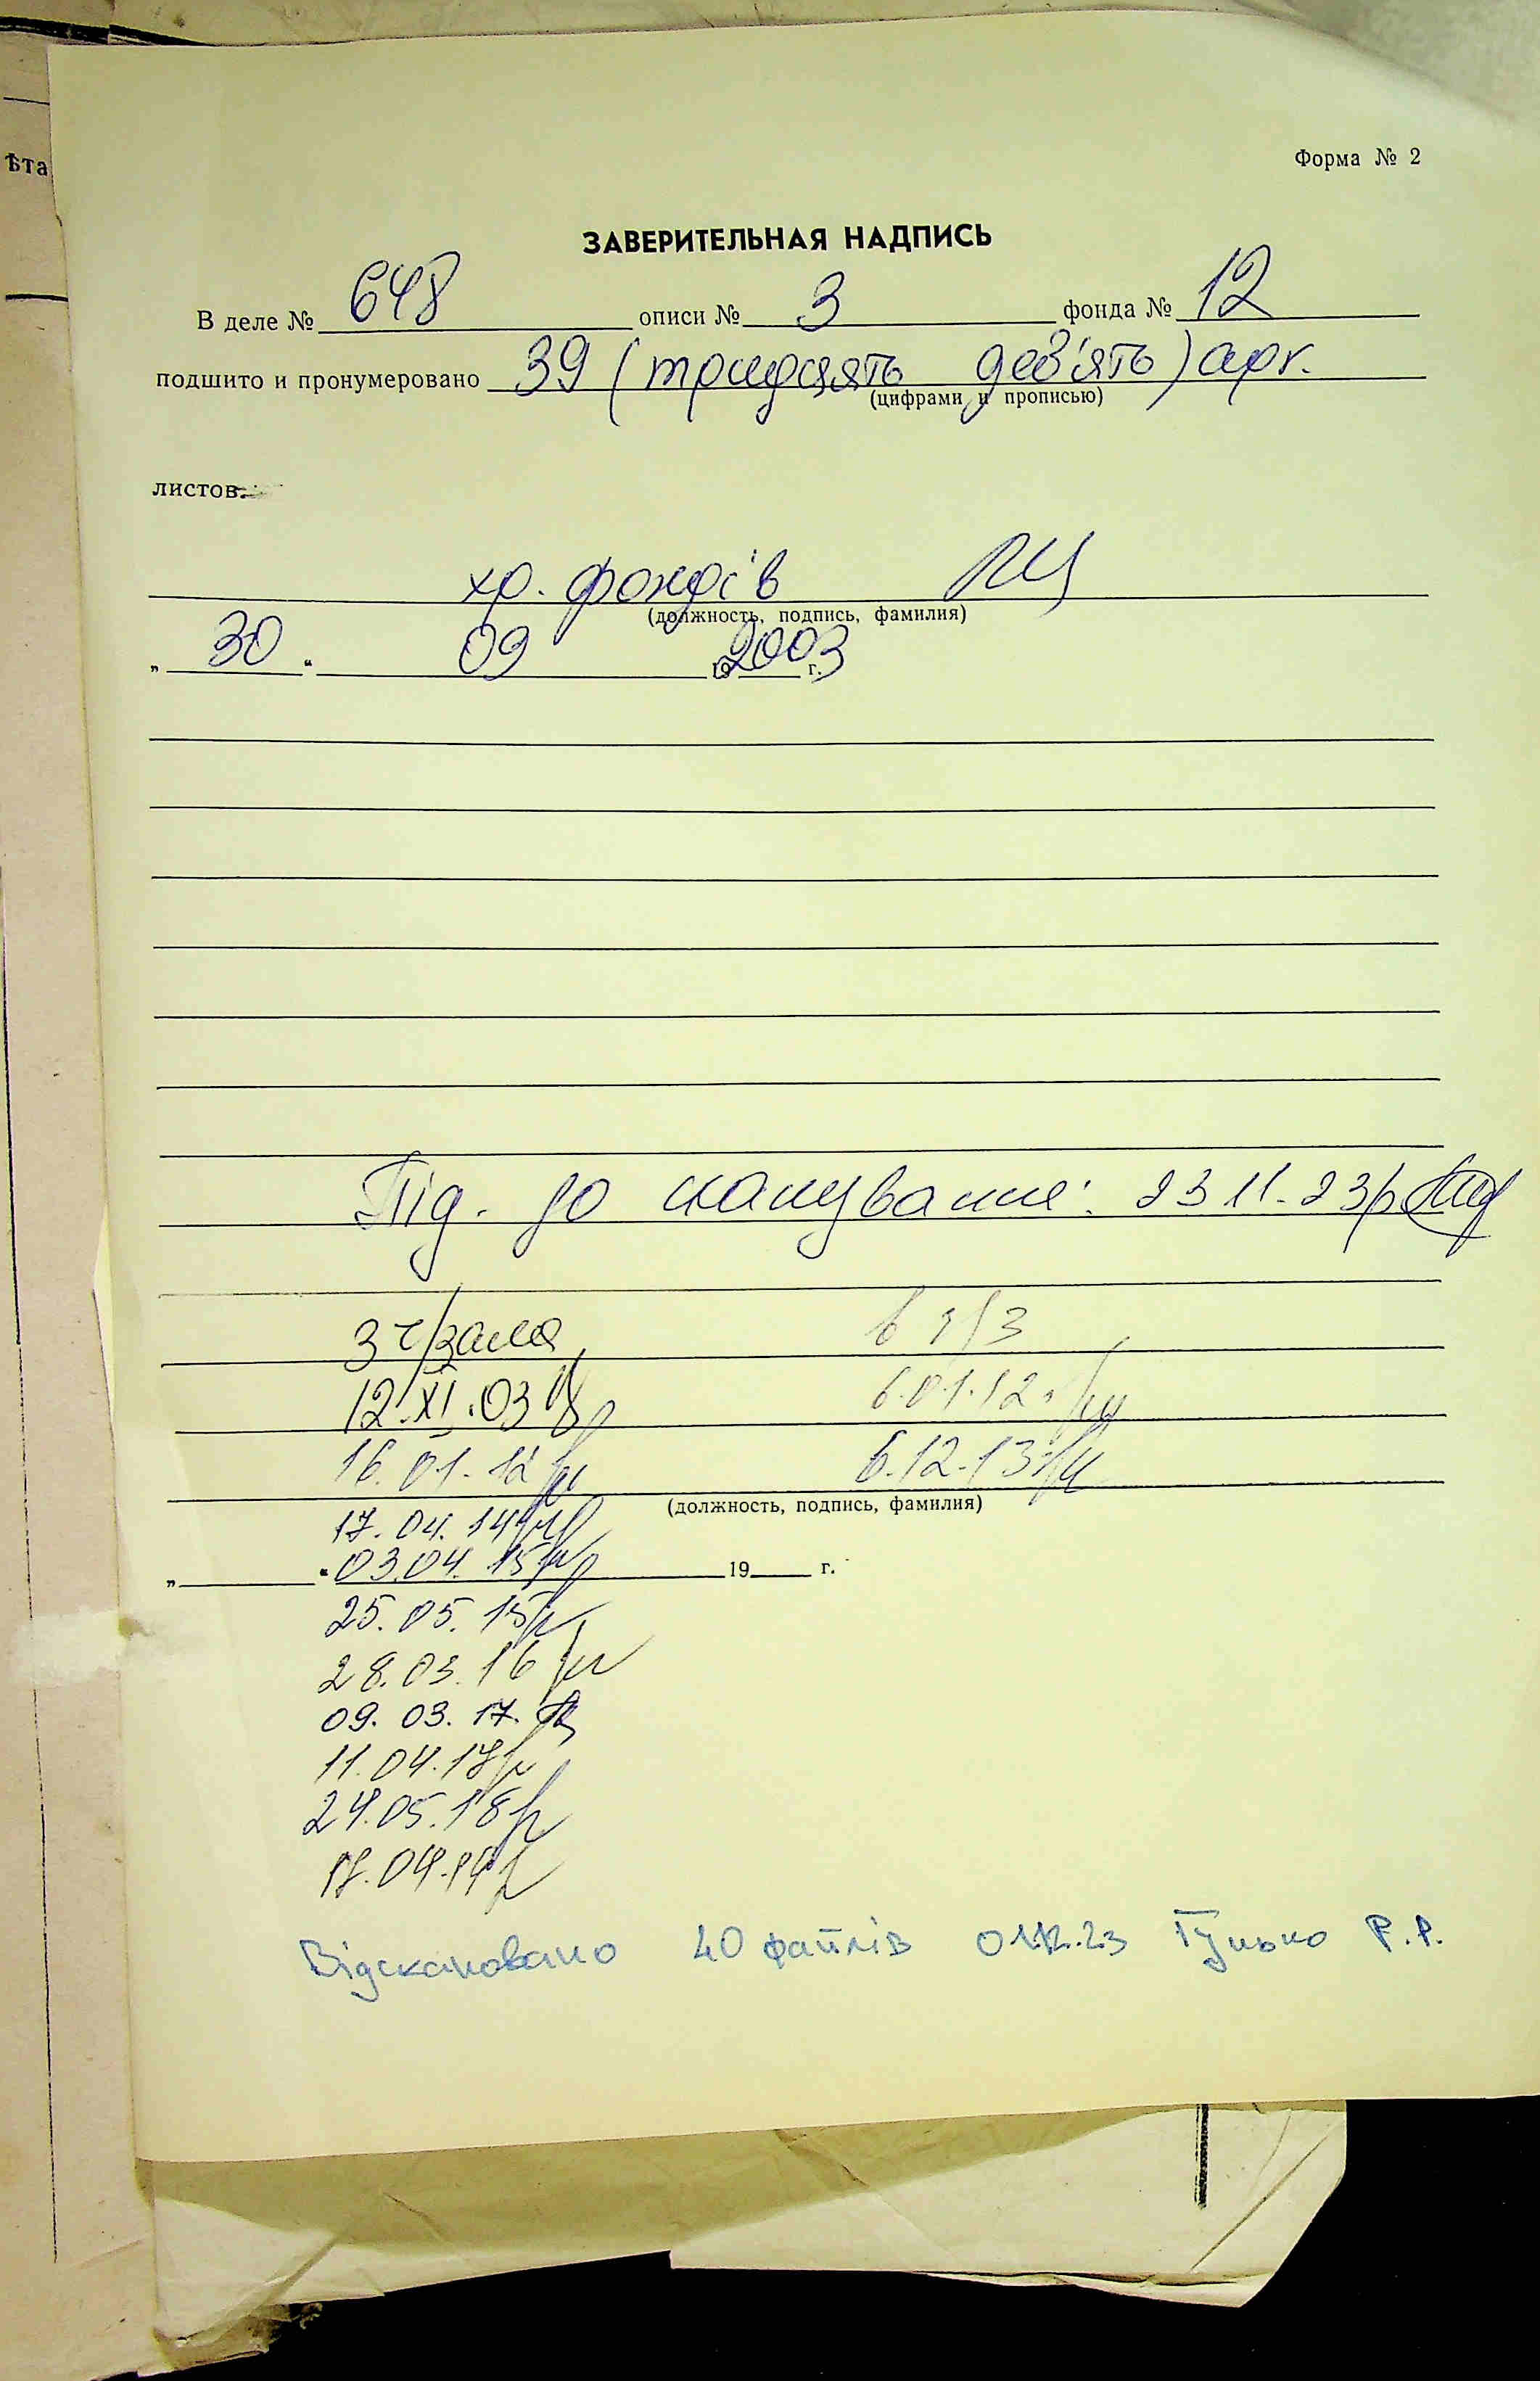 ѣта
Форма № 2
ЗАВЕРИТЕЛЬНАЯ НАДПИСЬ
В деле № 648 описи № 3 фонда № 12
подшито и пронумеровано 39 (тридцять дев'ять) арк.
(цифрами и прописью)
листов.
хр. фондів
(должность, подпись, фамилия)
„ 30 “ 09 19 2003 г.
Під. до сканування: 23 11. 23р
З ч/зала в ч/З
12.XI.03 6.01.12
16.01.12 6.12.13
(должность, подпись, фамилия)
17.04.14
„ “ 03.04.15 19 г.
25.05.15
28.03.16
09.03.17.
11.04.18
24.05.18
17.04.19
Відскановано 40 файлів 01.12.23 Гунько Р.Р.